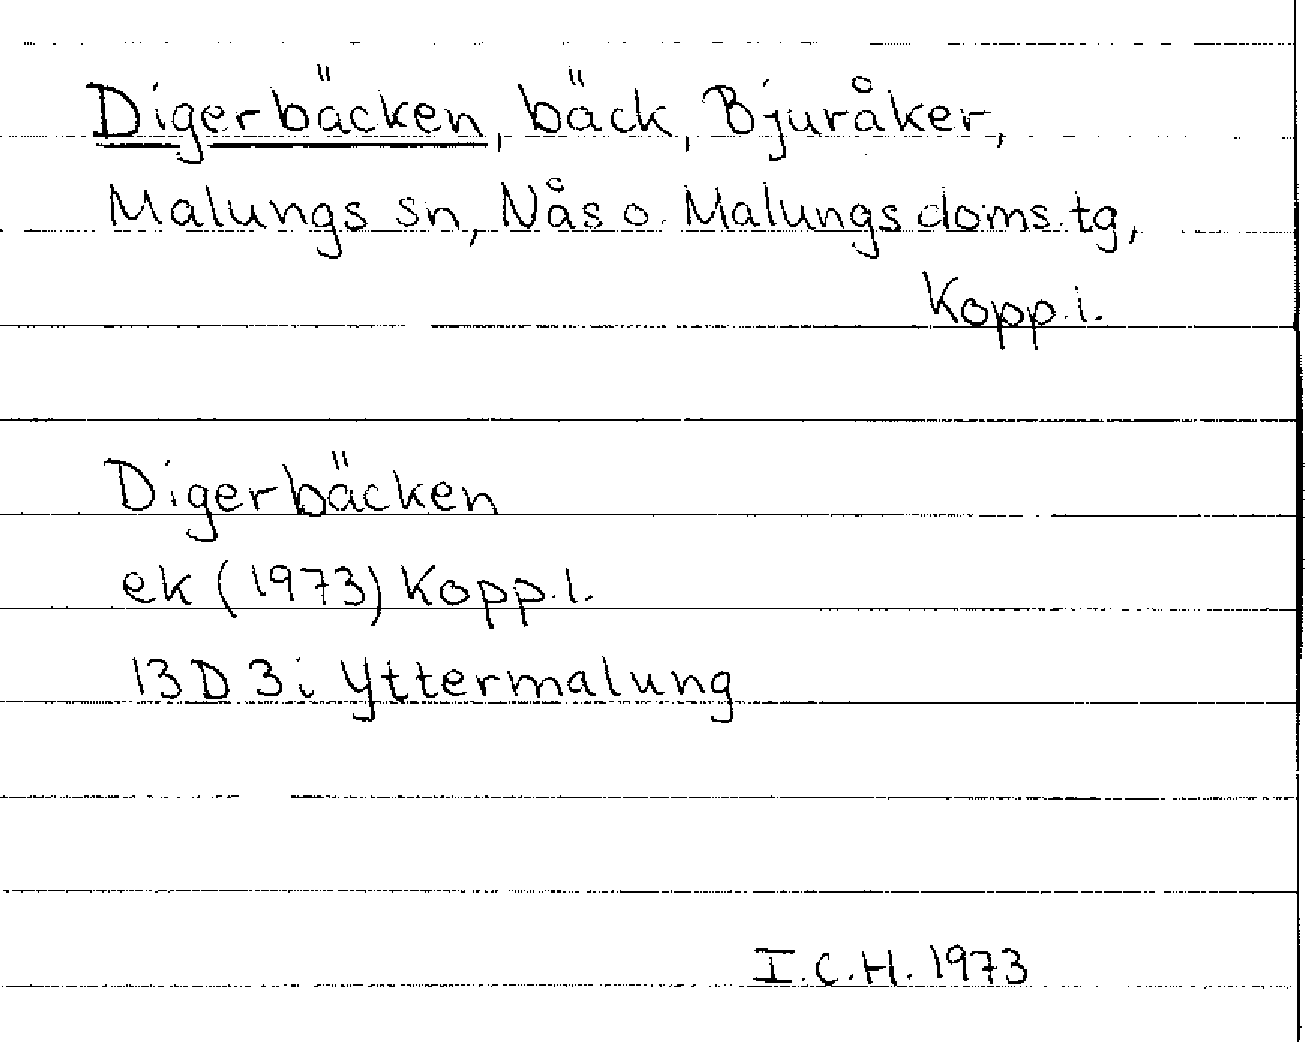 Digerbäcken, bäck, Bjuråker,
Malungs sn, Nås o. Malungs doms.tg,
Kopp.l.
Digerbäcken
ek (1973) Kopp.l.
13D 3i Yttermalung
I.C.H. 1973